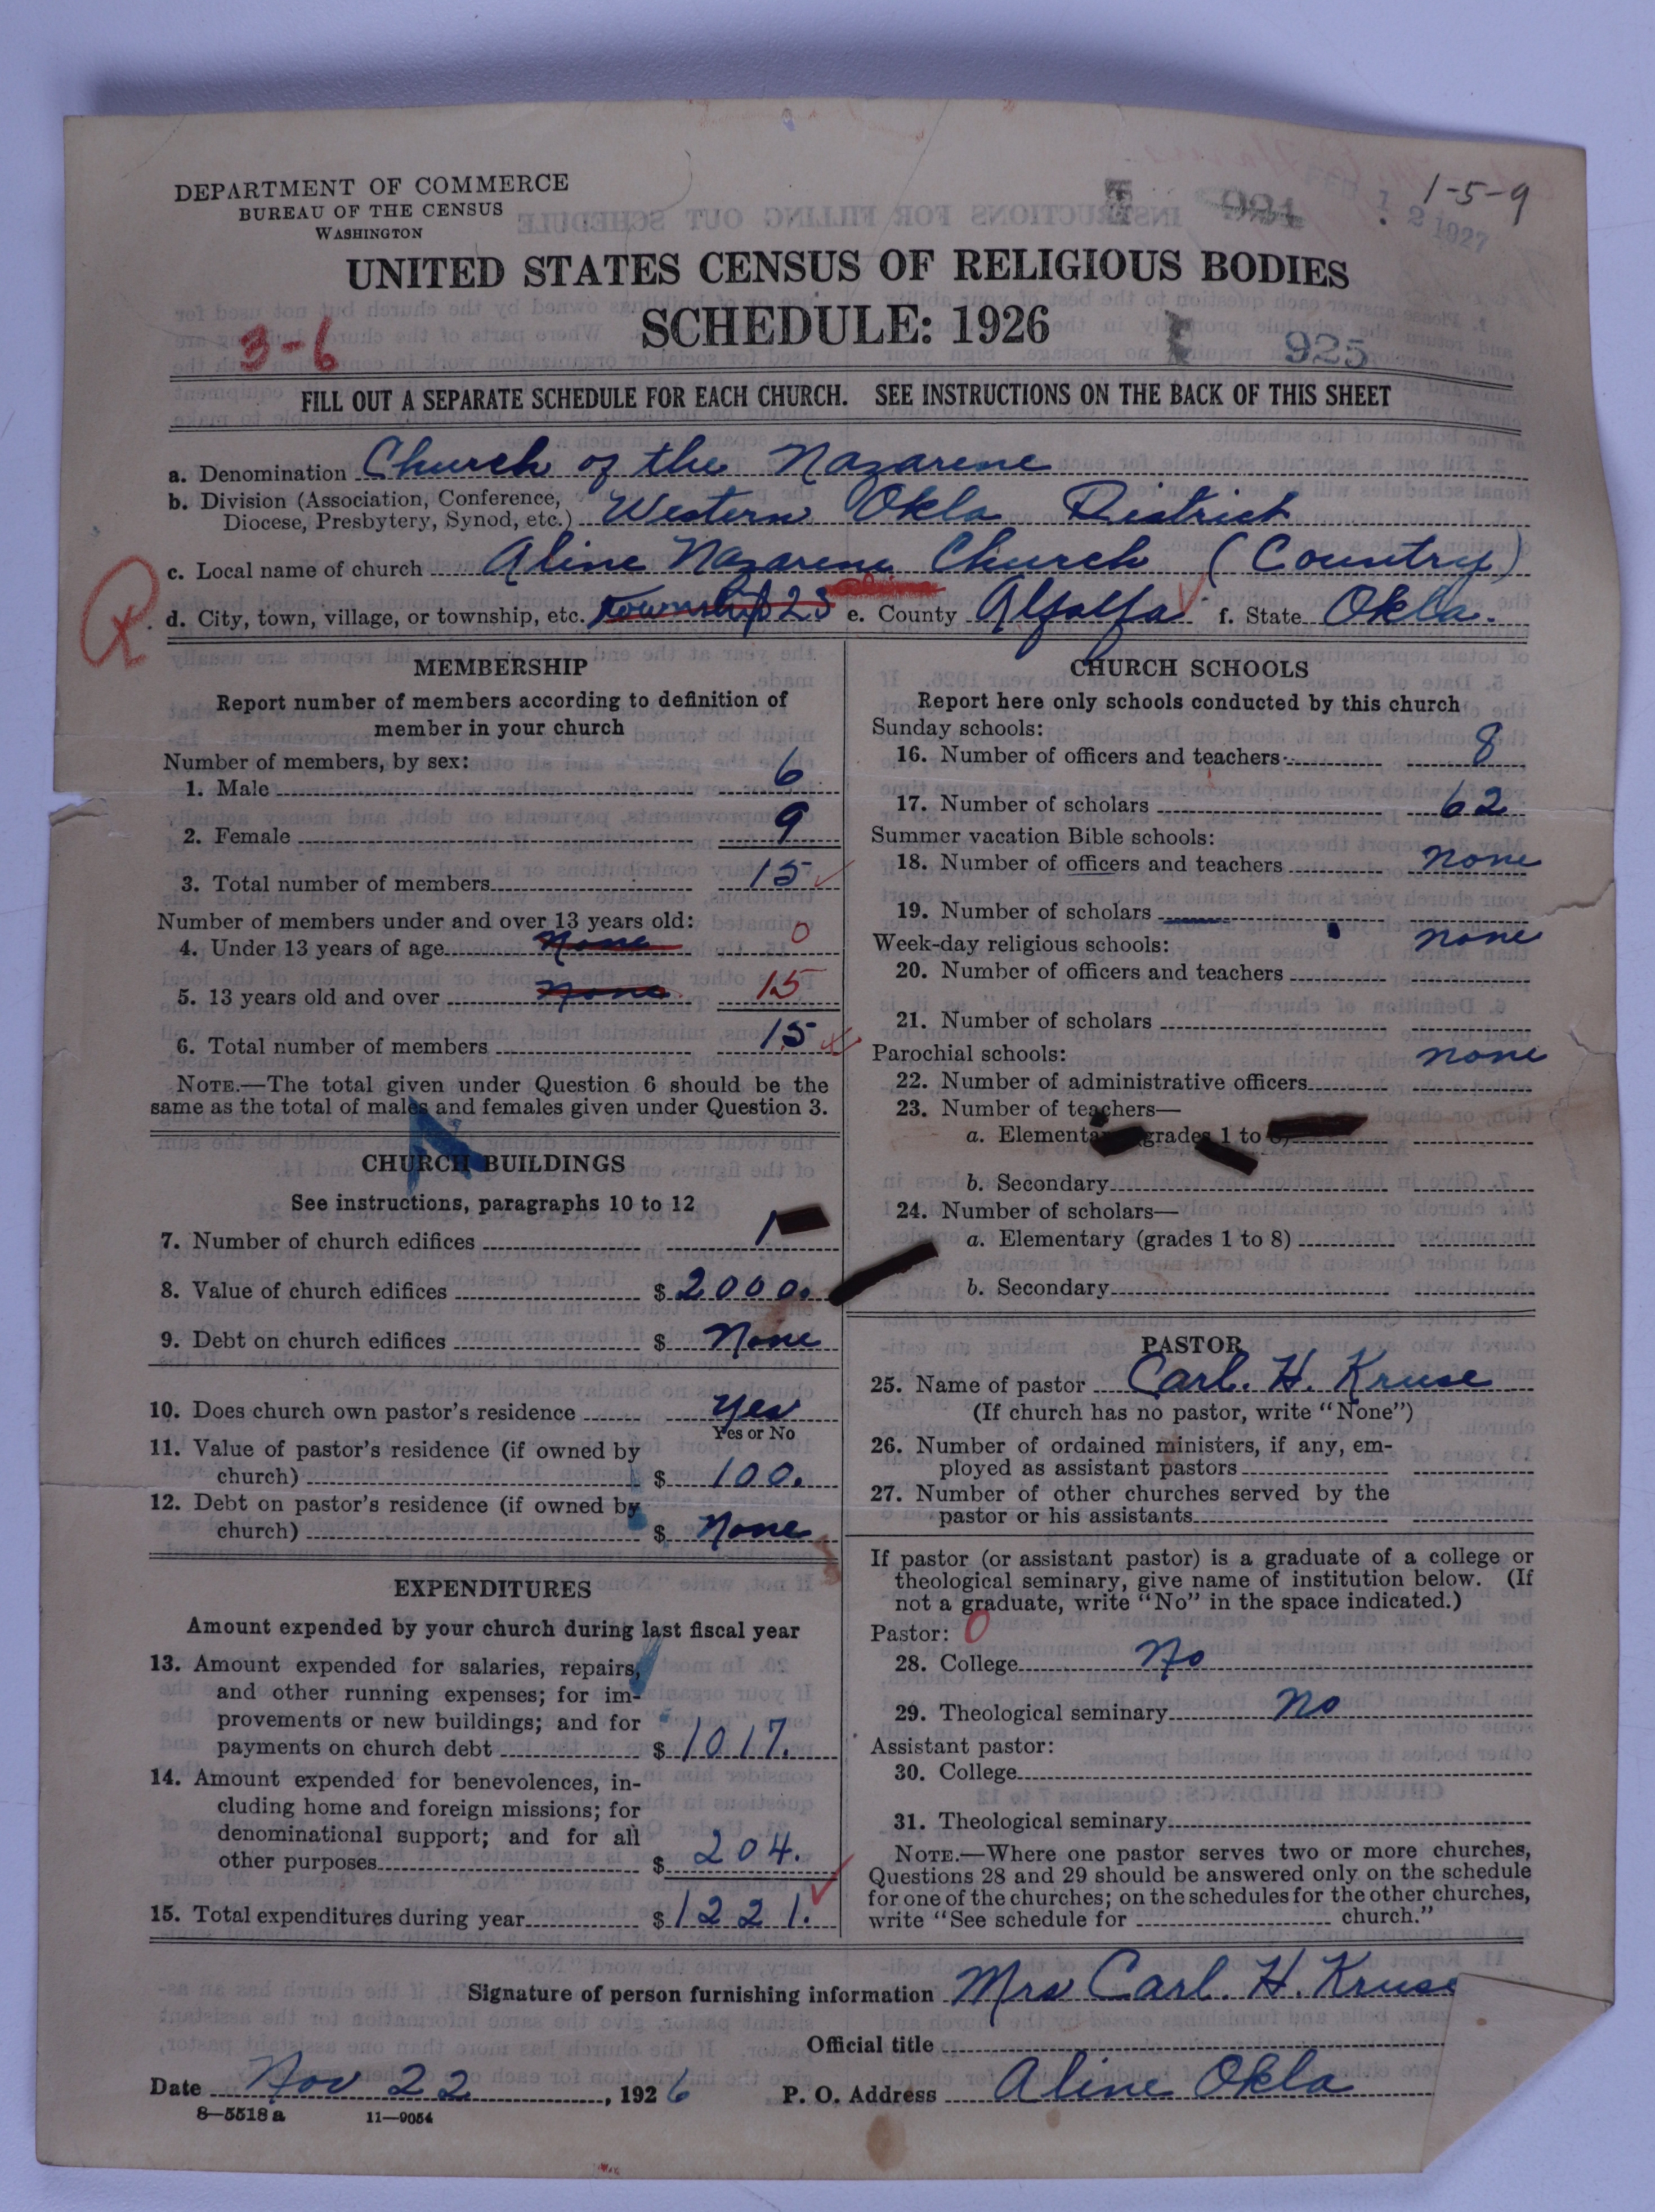 DEPARTMENT OF COMMERCE
BUREAU OF THE CENSUS
WASHINGTON
1-5-9
924
12 1927
UNITED STATES CENSUS OF RELIGIOUS BODIES
SCHEDULE: 1926
3-6
925
FILL OUT A SEPARATE SCHEDULE FOR EACH CHURCH. SEE INSTRUCTIONS ON THE BACK OF THIS SHEET
a. Denomination Church of the Nazarene
b. Division (Association, Conference, Diocese, Presbytery, Synod, etc.) Western Okla District
c. Local name of church Aline Nazarene Church (Country)
d. City, town, village, or township, etc. Township 23 e. County Alfalfa f. State Okla.
MEMBERSHIP
Report number of members according to definition of
member in your church
Number of members, by sex:
1. Male 6
2. Female 9
3. Total number of members 15
Number of members under and over 13 years old:
4. Under 13 years of age None 0
5. 13 years old and over None 15
6. Total number of members 15
NOTE.—The total given under Question 6 should be the
same as the total of males and females given under Question 3.
CHURCH BUILDINGS
See instructions, paragraphs 10 to 12
7. Number of church edifices 1
8. Value of church edifices $ 2000.
9. Debt on church edifices $ None
10. Does church own pastor's residence Yes
Yes or No
11. Value of pastor's residence (if owned by
church) $ 100.
12. Debt on pastor's residence (if owned by
church) $ None
EXPENDITURES
Amount expended by your church during last fiscal year
13. Amount expended for salaries, repairs,
and other running expenses; for im-
provements or new buildings; and for
payments on church debt $ 1017.
14. Amount expended for benevolences, in-
cluding home and foreign missions; for
denominational support; and for all
other purposes $ 204.
15. Total expenditures during year $ 1221.
CHURCH SCHOOLS
Report here only schools conducted by this church
Sunday schools:
16. Number of officers and teachers 8
17. Number of scholars 62
Summer vacation Bible schools:
18. Number of officers and teachers none
19. Number of scholars
Week-day religious schools: none
20. Number of officers and teachers
21. Number of scholars
Parochial schools: none
22. Number of administrative officers
23. Number of teachers—
a. Elementary (grades 1 to 8)
b. Secondary
24. Number of scholars—
a. Elementary (grades 1 to 8)
b. Secondary
PASTOR
25. Name of pastor Carl. H. Kruse
(If church has no pastor, write "None")
26. Number of ordained ministers, if any, em-
ployed as assistant pastors
27. Number of other churches served by the
pastor or his assistants
If pastor (or assistant pastor) is a graduate of a college or
theological seminary, give name of institution below. (If
not a graduate, write "No" in the space indicated.)
Pastor: 0
28. College No
29. Theological seminary No
Assistant pastor:
30. College
31. Theological seminary
NOTE.—Where one pastor serves two or more churches,
Questions 28 and 29 should be answered only on the schedule
for one of the churches; on the schedules for the other churches,
write "See schedule for church."
Signature of person furnishing information Mrs Carl. H. Kruse
Official title
Date Nov 22, 1926 P. O. Address Aline Okla
8—5518 a 11—9054